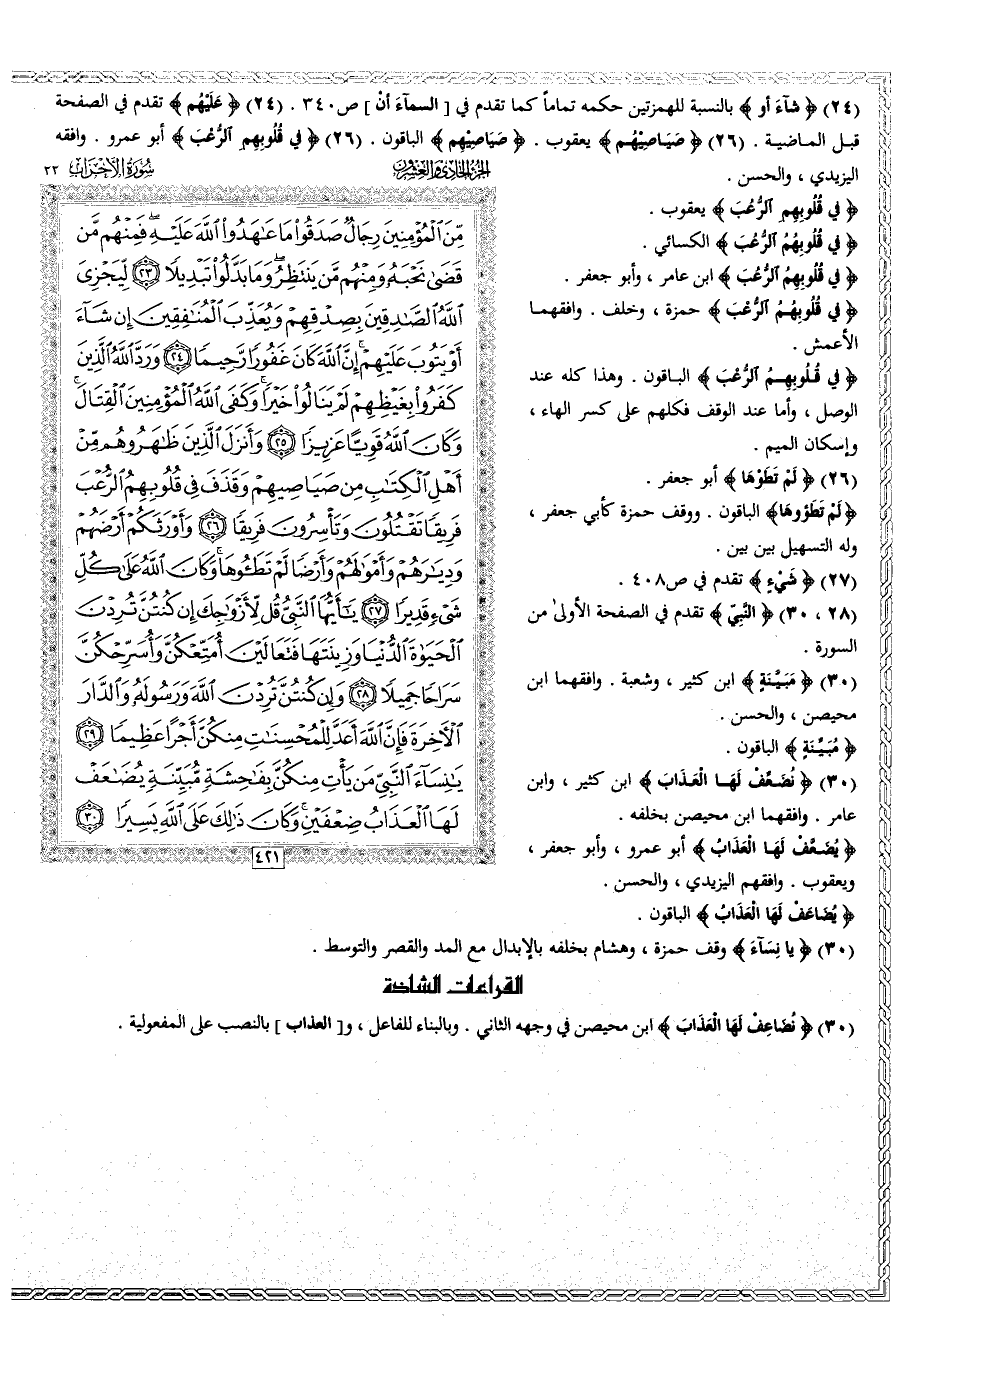 (٢٤) ﴿ شآءَ أو ﴾ بالنسبة للهمزتين حكمه تماماً كما تقدم في [ السمآءَ أنْ ] ص٣٤٠ . (٢٤) ﴿ عَلَيْهُم ﴾ تقدم في الصفحة
قبل الماضية . (٢٦) ﴿ صَيَاصِيْهُـم ﴾ يعقوب . ﴿ صَيَاصِيْهِم ﴾ الباقون . (٢٦) ﴿ في قُلُوبِهِمِ ٱلرُّعْبَ ﴾ أبو عمرو . وافقه
اليزيدي ، والحسن .
﴿ في قُلُوبِهِمِ ٱلرُّعُبَ ﴾ يعقوب .
﴿ في قُلُوبِهُمُ ٱلرُّعْبَ ﴾ الكسائي .
﴿ في قُلُوبِهِمُ ٱلرُّعُبَ ﴾ ابن عامر ، وأبو جعفر .
﴿ في قُلُوبِهُـمُ ٱلرُّعْبَ ﴾ حمزة ، وخلف . وافقهمـا
الأعمش .
﴿ في قُـلُوبِهِـمُ ٱلرُّعْبَ ﴾ البـاقون . وهذا كله عند
الوصل ، وأما عند الوقف فكلهم على كسر الهاء ،
وإسكان الميم .
(٢٦) ﴿ لَمْ تَطَوْهَا ﴾ أبو جعفر .
﴿لَمْ تَطَؤوهَا﴾ الباقون . ووقف حمزة كأبي جعفر ،
وله التسهيل بين بين .
(٢٧) ﴿ شَيْءٍ ﴾ تقدم في ص٤٠٨ .
(٢٨ ، ٣٠) ﴿ النَّبِيّ ﴾ تقدم في الصفحة الأولىٰ من
السورة .
(٣٠) ﴿ مُبَيَّنَةٍ ﴾ ابن كثير ، وشعبة . وافقهما ابن
محيصن ، والحسن .
﴿ مُبَيِّنَةٍ ﴾ الباقون .
(٣٠) ﴿ نُضَعِّفْ لَهَـا الْعَذَابَ ﴾ ابن كثير ، وابن
عامر . وافقهما ابن محيصن بخلفه .
﴿ يُضَعَّفْ لَهَـا الْعَذَابُ ﴾ أبو عمرو ، وأبو جعفر ،
ويعقوب . وافقهم اليزيدي ، والحسن .
﴿ يُضَاعَفْ لَهَا الْعَذَابُ ﴾ الباقون .
(٣٠) ﴿ يا نِسَآءَ ﴾ وقف حمزة ، وهشام بخلفه بالإبدال مع المد والقصر والتوسط .
القراءات الشاذة
(٣٠) ﴿ نُضَاعِفْ لَهَا الْعَذَابَ ﴾ ابن محيصن في وجهه الثاني . وبالبناء للفاعل ، و[ العذاب ] بالنصب على المفعولية .
الجزء الحادي والعشرون
سورة الأحزاب ٣٣
مِّنَ ٱلْمُؤْمِنِينَ رِجَالٌ صَدَقُوا۟ مَا عَـٰهَدُوا۟ ٱللَّهَ عَلَيْهِ ۖ فَمِنْهُم مَّن
قَضَىٰ نَحْبَهُۥ وَمِنْهُم مَّن يَنتَظِرُ ۖ وَمَا بَدَّلُوا۟ تَبْدِيلًا ٢٣ لِّيَجْزِىَ
ٱللَّهُ ٱلصَّـٰدِقِينَ بِصِدْقِهِمْ وَيُعَذِّبَ ٱلْمُنَـٰفِقِينَ إِن شَآءَ
أَوْ يَتُوبَ عَلَيْهِمْ ۚ إِنَّ ٱللَّهَ كَانَ غَفُورًا رَّحِيمًا ٢٤ وَرَدَّ ٱللَّهُ ٱلَّذِينَ
كَفَرُوا۟ بِغَيْظِهِمْ لَمْ يَنَالُوا۟ خَيْرًا ۚ وَكَفَى ٱللَّهُ ٱلْمُؤْمِنِينَ ٱلْقِتَالَ ۚ
وَكَانَ ٱللَّهُ قَوِيًّا عَزِيزًا ٢٥ وَأَنزَلَ ٱلَّذِينَ ظَـٰهَرُوهُم مِّنْ
أَهْلِ ٱلْكِتَـٰبِ مِن صَيَاصِيهِمْ وَقَذَفَ فِى قُلُوبِهِمُ ٱلرُّعْبَ
فَرِيقًا تَقْتُلُونَ وَتَأْسِرُونَ فَرِيقًا ٢٦ وَأَوْرَثَكُمْ أَرْضَهُمْ
وَدِيَـٰرَهُمْ وَأَمْوَٰلَهُمْ وَأَرْضًا لَّمْ تَطَـُٔوهَا ۚ وَكَانَ ٱللَّهُ عَلَىٰ كُلِّ
شَىْءٍ قَدِيرًا ٢٧ يَـٰٓأَيُّهَا ٱلنَّبِىُّ قُل لِّأَزْوَٰجِكَ إِن كُنتُنَّ تُرِدْنَ
ٱلْحَيَوٰةَ ٱلدُّنْيَا وَزِينَتَهَا فَتَعَالَيْنَ أُمَتِّعْكُنَّ وَأُسَرِّحْكُنَّ
سَرَاحًا جَمِيلًا ٢٨ وَإِن كُنتُنَّ تُرِدْنَ ٱللَّهَ وَرَسُولَهُۥ وَٱلدَّارَ
ٱلْـَٔاخِرَةَ فَإِنَّ ٱللَّهَ أَعَدَّ لِلْمُحْسِنَـٰتِ مِنكُنَّ أَجْرًا عَظِيمًا ٢٩
يَـٰنِسَآءَ ٱلنَّبِىِّ مَن يَأْتِ مِنكُنَّ بِفَـٰحِشَةٍ مُّبَيِّنَةٍ يُضَـٰعَفْ
لَهَا ٱلْعَذَابُ ضِعْفَيْنِ ۚ وَكَانَ ذَٰلِكَ عَلَى ٱللَّهِ يَسِيرًا ٣٠
٤٢١